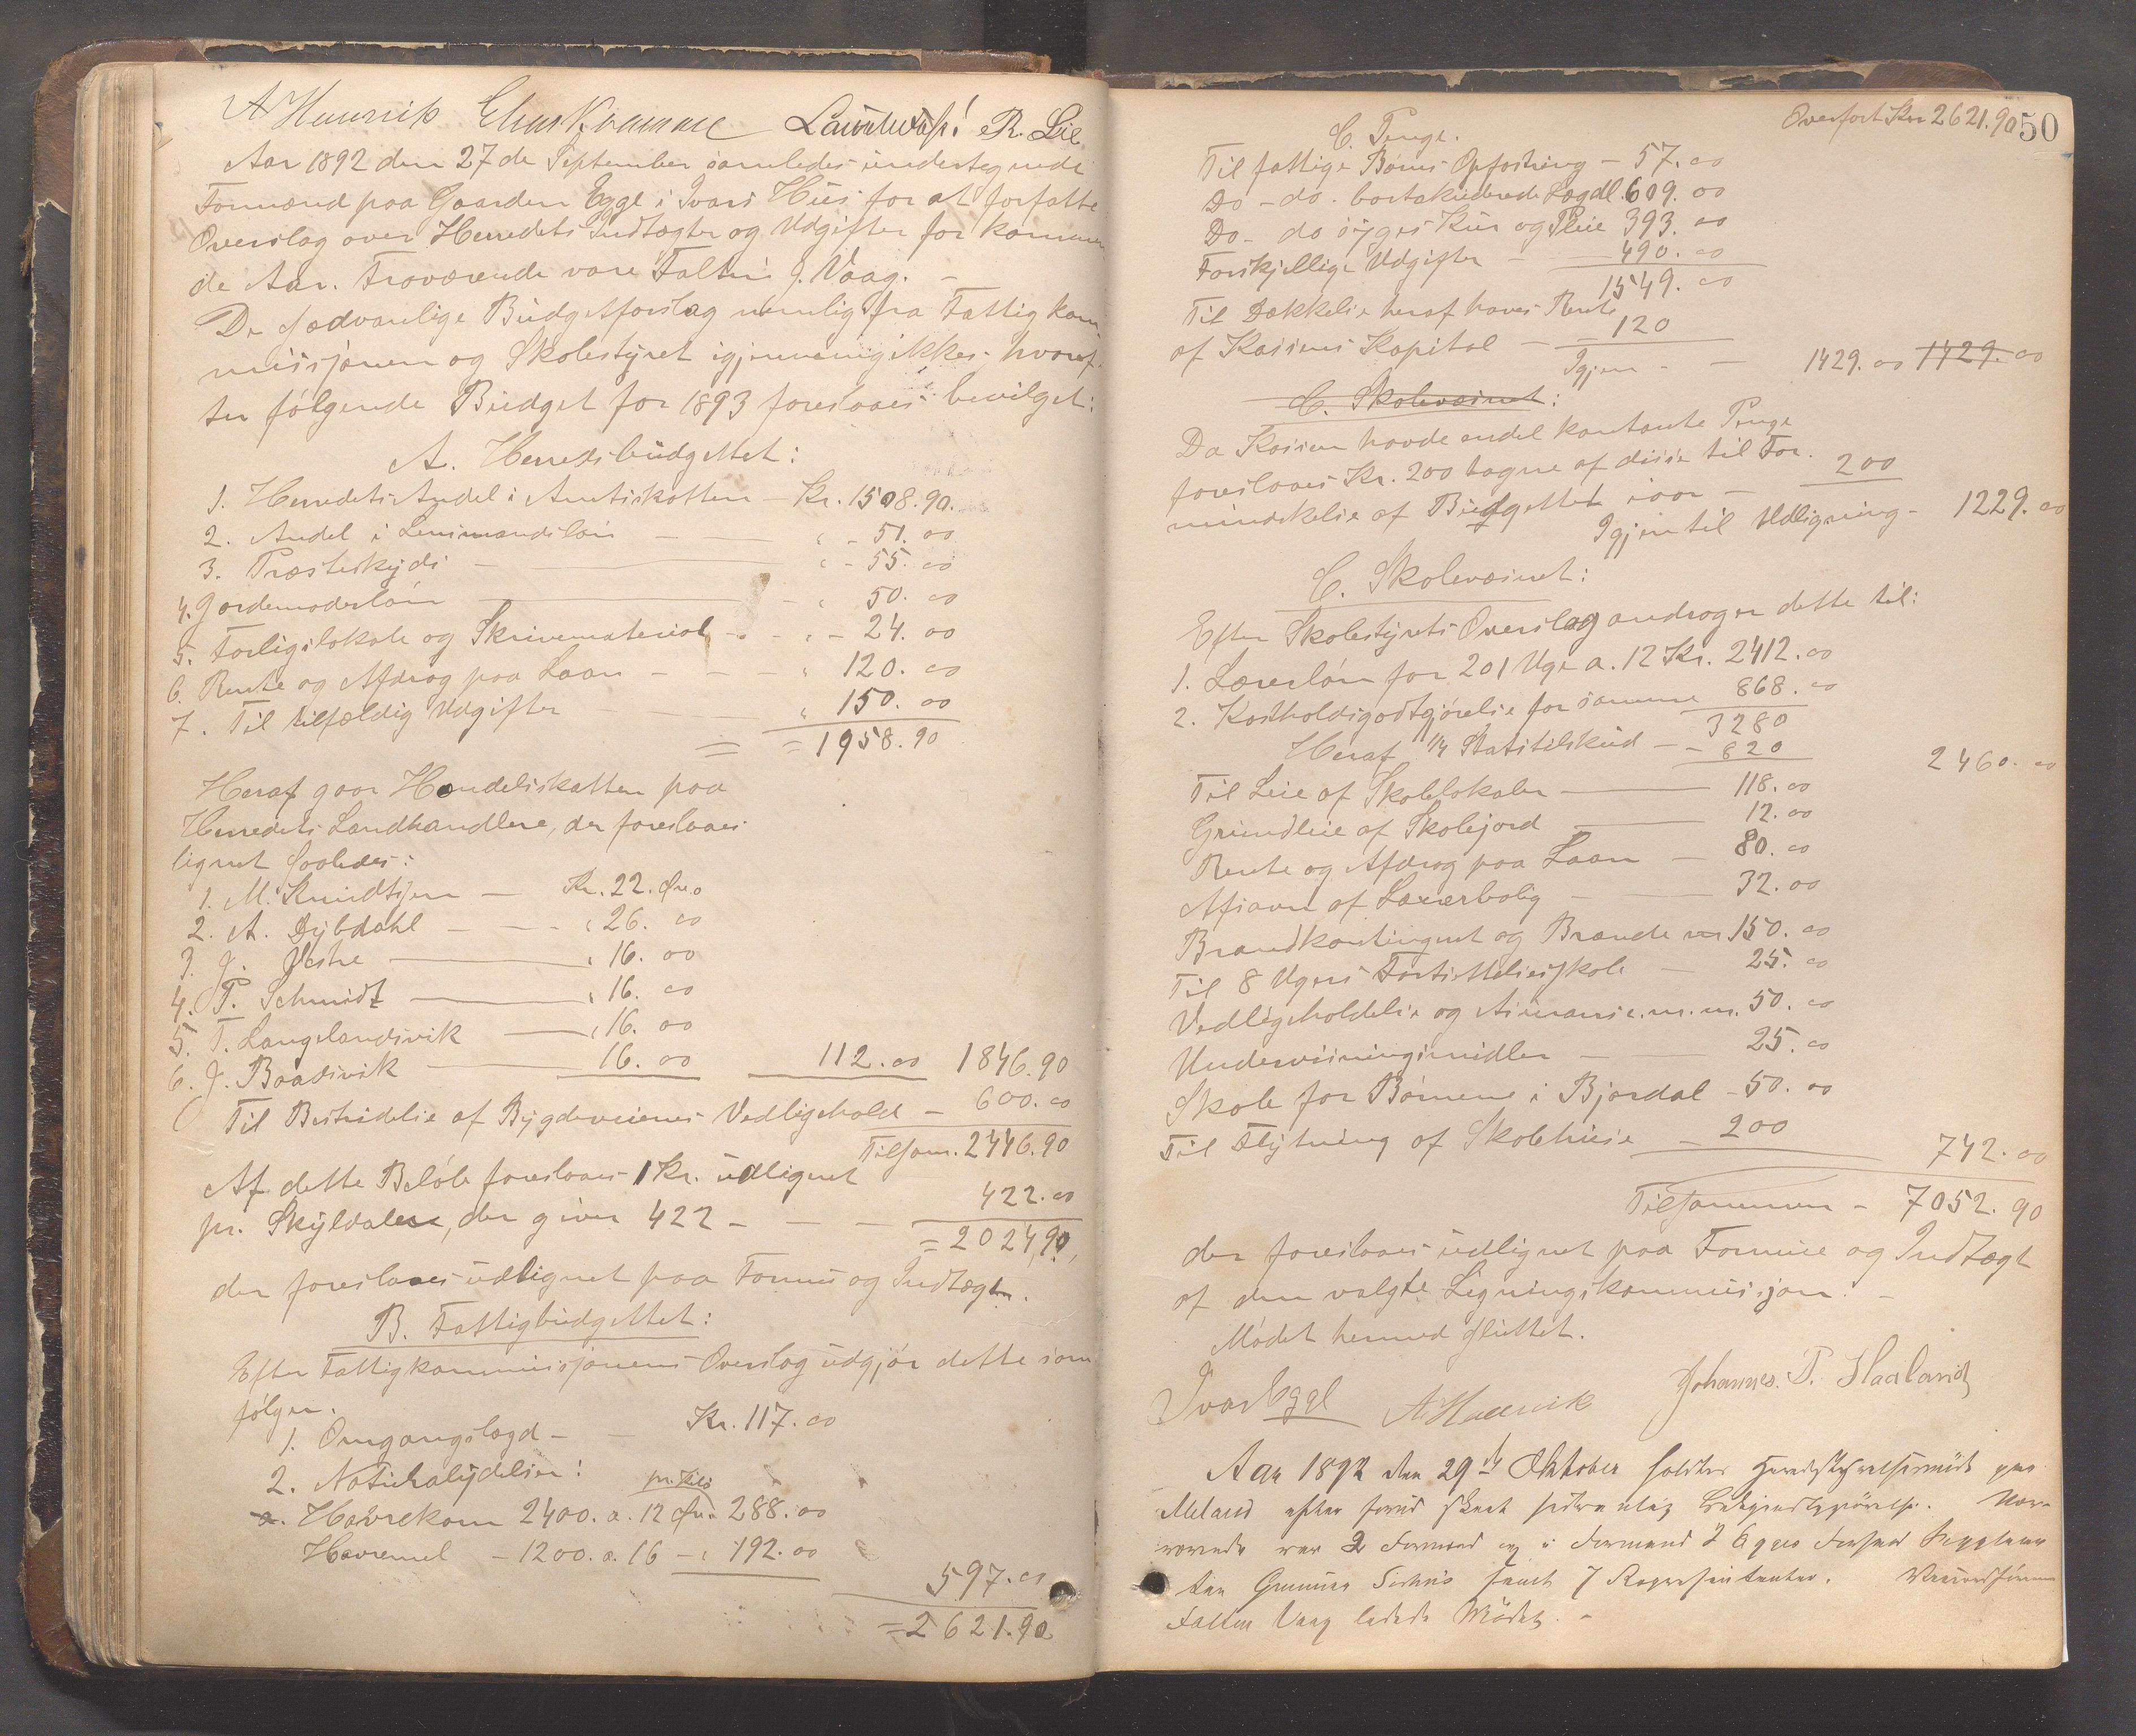 A Hennerik Elias Kramme Lauritz R. Lie
Aar 1892 den 27de September samledes undertegnede
Formænd paa Gaarden Eggl i Ivars Hus for at forfatte
Overslag over Herredets Indtægter og Udgifter for kommen
de Aar. Fraværende vare Falten J. Vaag. –
De sædvanlige Budgetforslag nemlig fra Fattigkom
missjonen og Skolestyret igjennemgikkes, hvoref-
ter følgende Budget for 1893 foreslaaes bevilget:
A. Herredsbudgettet:
1. Herredets Andel i Amtsskatten – Kr. 1508.90.
2. Andel i Lensmandsløn – – " - 51.00
3. Præsteskyds – – " - 55.00
4. Jordemoderløn – " 50.00
5. Forligslokale og Skrivematerial – " - 24.00
6. Rente og Afdrag paa Laan – – " 120.00
7. Til tilfældig Udgifter – " 150.00
= = 1958.90
Heraf gaar Handelsskatten paa
Herredets Landhandlere, der foreslaaes
lignet saaledes:
1. M. Knudtsen – Kr. 22. Øre 0
2. A. Dybdahl – – - " 26. 00
3. J. Vestre – " 16. 00
4. P. Schmidt – " 16. 00
5. T. Langelandsvik – " 16. 00
6. J. Baadsvik – 16. 00 112.00 1846.90
Til Bestridelse af Bygdeveienes Vedligehold – 600.00
Tilsam. 2446.90
Af dette Beløb foreslaaes 1 Kr. udlignet
pr. Skyldaler, der giver 422 – – – 422.00
= 2024,90,
der foreslaaes udlignet paa Formue og Indtægt.
B. Fattigbudgettet:
Efter Fattigkommissjonens Overslag udgjør dette som
følger.
1. Omgangslægd – – Kr. 117.00
2. Naturalydelser: pr. Kilo
a. Havrekorn 2400. a. 12 Øre 288.00
Havremel – 1200. a. 16 – " 192.00
597.00
= 2621.90
Overført Kr. 2621.90 50
C. Penge.
Til fattige Børns Opfostring – 57.00
Do – do. bortakkuderede Lægdl. 609.00
Do – do syges Kur og Pleie 393.00
Forskjellige Udgifter – 490.00
1549.00
Til Dækkelse heraf haves Rente
af Kassens Kapital – – 120
Igjen – – 1429.00 1429.00
C. Skolevæsenet:
Da Kassen havde endel kontante Penge
foreslaaes Kr. 200 tagne af disse til For-
mindskelse af Budgettet iaar – 200
Igjen til Udligning – 1229.00
C. Skolevæsenet:
Efter Skolestyrets Overslag andrager dette til:
1. Lærerløn for 201 Uge a. 12 Kr. 2412.00
2. Kostholdsgodtgjørelse for samme 868.00
3280
Heraf 1/4 Statstilskud – – 820 2460.00
Til Leie af Skolelokaler – 118.00
Grundleie af Skolejord – 12.00
Rente og Afdrag paa Laan – 80.00
Afsavn af Lærerbolig – 32.00
Brandkontingent og Brænde 150.00
Til 8 Ugers Fortsættelsesskole – 25.00
Vedligeholdelse og Assuranse. m. m. 50.00
Undervisningsmidler – 25.00
Skole for Børnene i Bjordal – 50.00
Til Flytning af Skolehuse – 200
742.00
Tilsammen – 7052.90
der foreslaaes udlignet paa Formue og Indtægt
af den valgte Ligningskommissjon. –
Mødet hermed sluttet.
Ivar Eggl A Hennerik Johannes. P. Haaland
Aar 1892 den 29de Oktober holdtes Herredsstyrelsesmøde paa
Meland efter forud skeet sædvanlig Bekjendtgjørelse. Nær-
værende var 2 Formænd og i Formand I Eggls Forfald Supplean
ten Gunnar samt 7 Repræsentanter.
Falten Vaag ledede Mødet. –